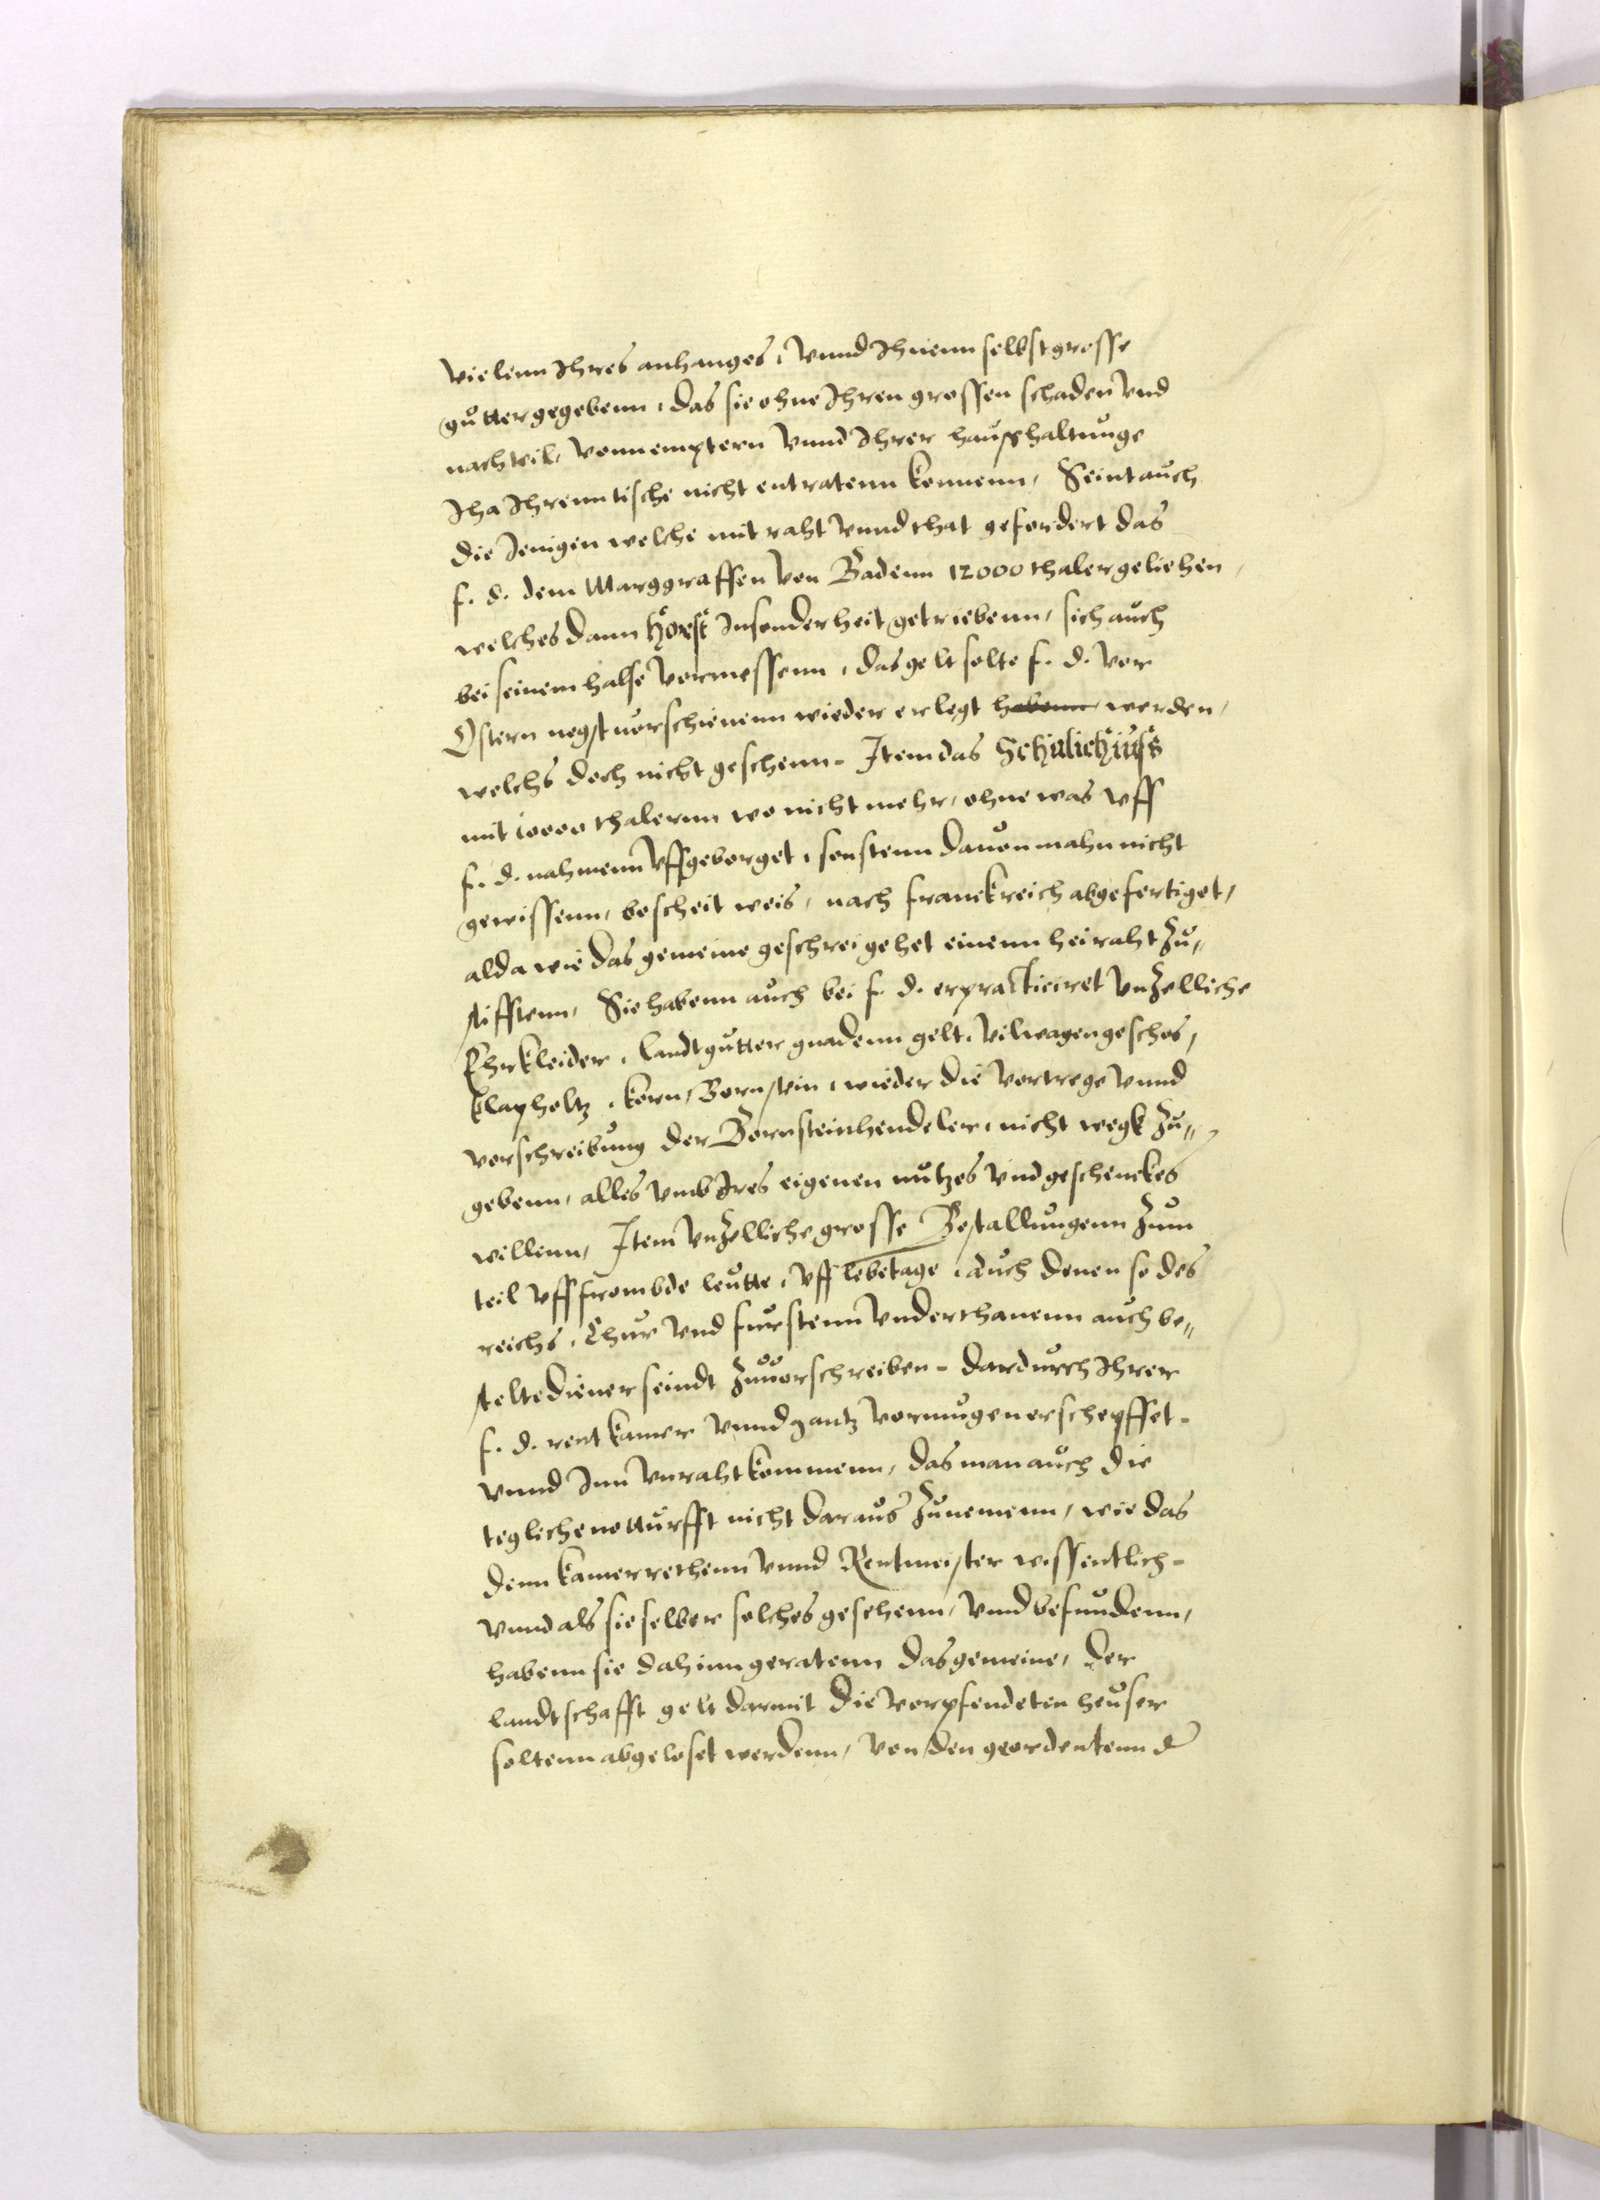 vielenn Ihres anhanges, vnnd Ihnenn selbst grosse
gutter gegebenn, das sie ohne Ihren grossen schaden vnd
nachteil, vonn emptern vnnd Ihrer haushaltunge
Iha Ihrenn tische nicht entratenn konnenn, Seint auch
die Jenigen welche mit raht vnnd that gefordert das
f. d. dem Marggraffen von Badenn 12000 thaler geliehen,
welches dann Horst Insonderheit getriebenn, sich auch
bei seinem halse vormessenn, das gelt solte f. d. vor
Ostern negst vorschienenn wieder erlegt habenn werden,
welchs doch nicht geschenn. Item das Schalichius
mit 10000 thalernn wo nicht mehr, ohne was vff
f. d. nahmenn vffgeborget, sonstenn dauon mahn nicht
gewissenn, bescheit weis, nach franckreich abgefertiget,
alda wie das gemeine geschrei gehet einenn heiraht zu
stifftenn, Sie habenn auch bei f. d. erpracticiret vnzelliche
Ehrkleider, landtgutter gnadenn gelt, vil wagengeschos,
klapholtz, korn, Bornstein, wieder die vortrege vnnd
vorschreibung der Bornsteinhendeler, nicht wegk zu
gebenn, alles vmb Ires eigenen nutzes vnd geschenckes
willenn, Item vnzelliche grosse Bestallungenn zum
teil vff frombde leutte, vff lebetage, auch denen so des
reichs, Chur vnd furstenn vnderthanenn auch be
stelte diener seindt zuuorschreiben. dardurch Ihrer
f. d. rentkamer vnnd gantz vormugen erschepffet.
vnnd Inn vnraht kommenn, das man auch die
teglichenotturfft nicht daraus zunemenn, wie das
denn kamerrethenn vnnd Rentmeister wissentlich.
vnnd als sie selber solches gesehenn, vnd befundenn,
habenn sie dahinn geratenn das gemeine, der
landtschafft gelt darmit die vorpfendeten heuser
soltenn abgeloset werdenn, von den geordentenn d